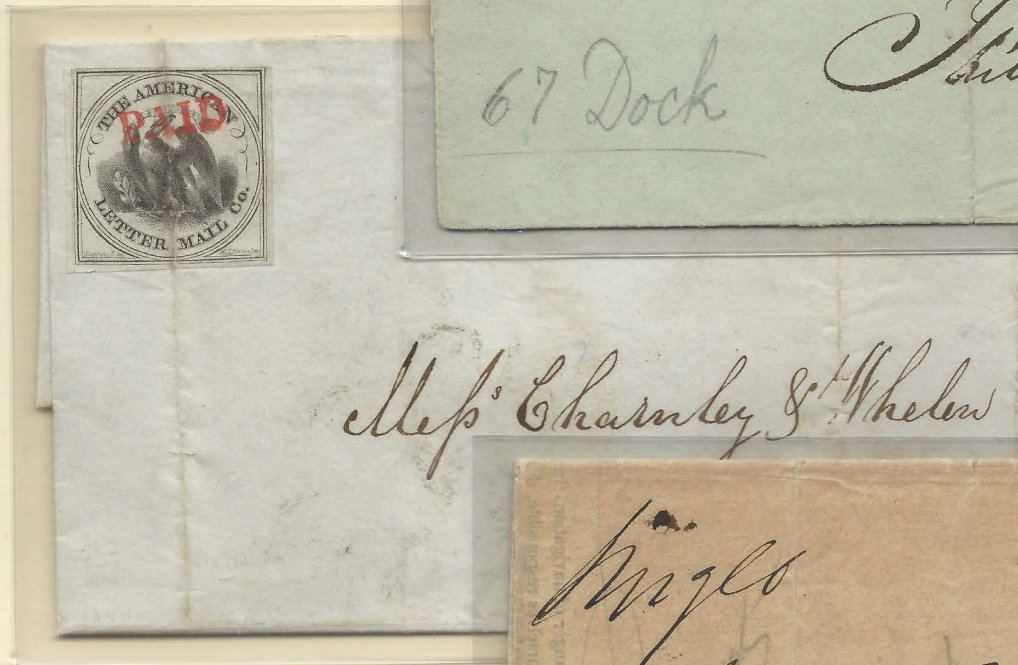 THE AMERICAN
PAID
LETTER MAIL CO.
67 Dock
Messˢ Charnley & Whelen
Single